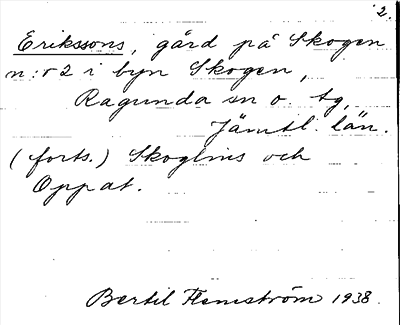 2.
Erikssons, gård på Skogen
n:r 2 i byn Skogen,
Ragunda sn o. tg,
Jämtl. län.
(forts.) Skoglins och
Oppat.
Bertil Flemström 1938.